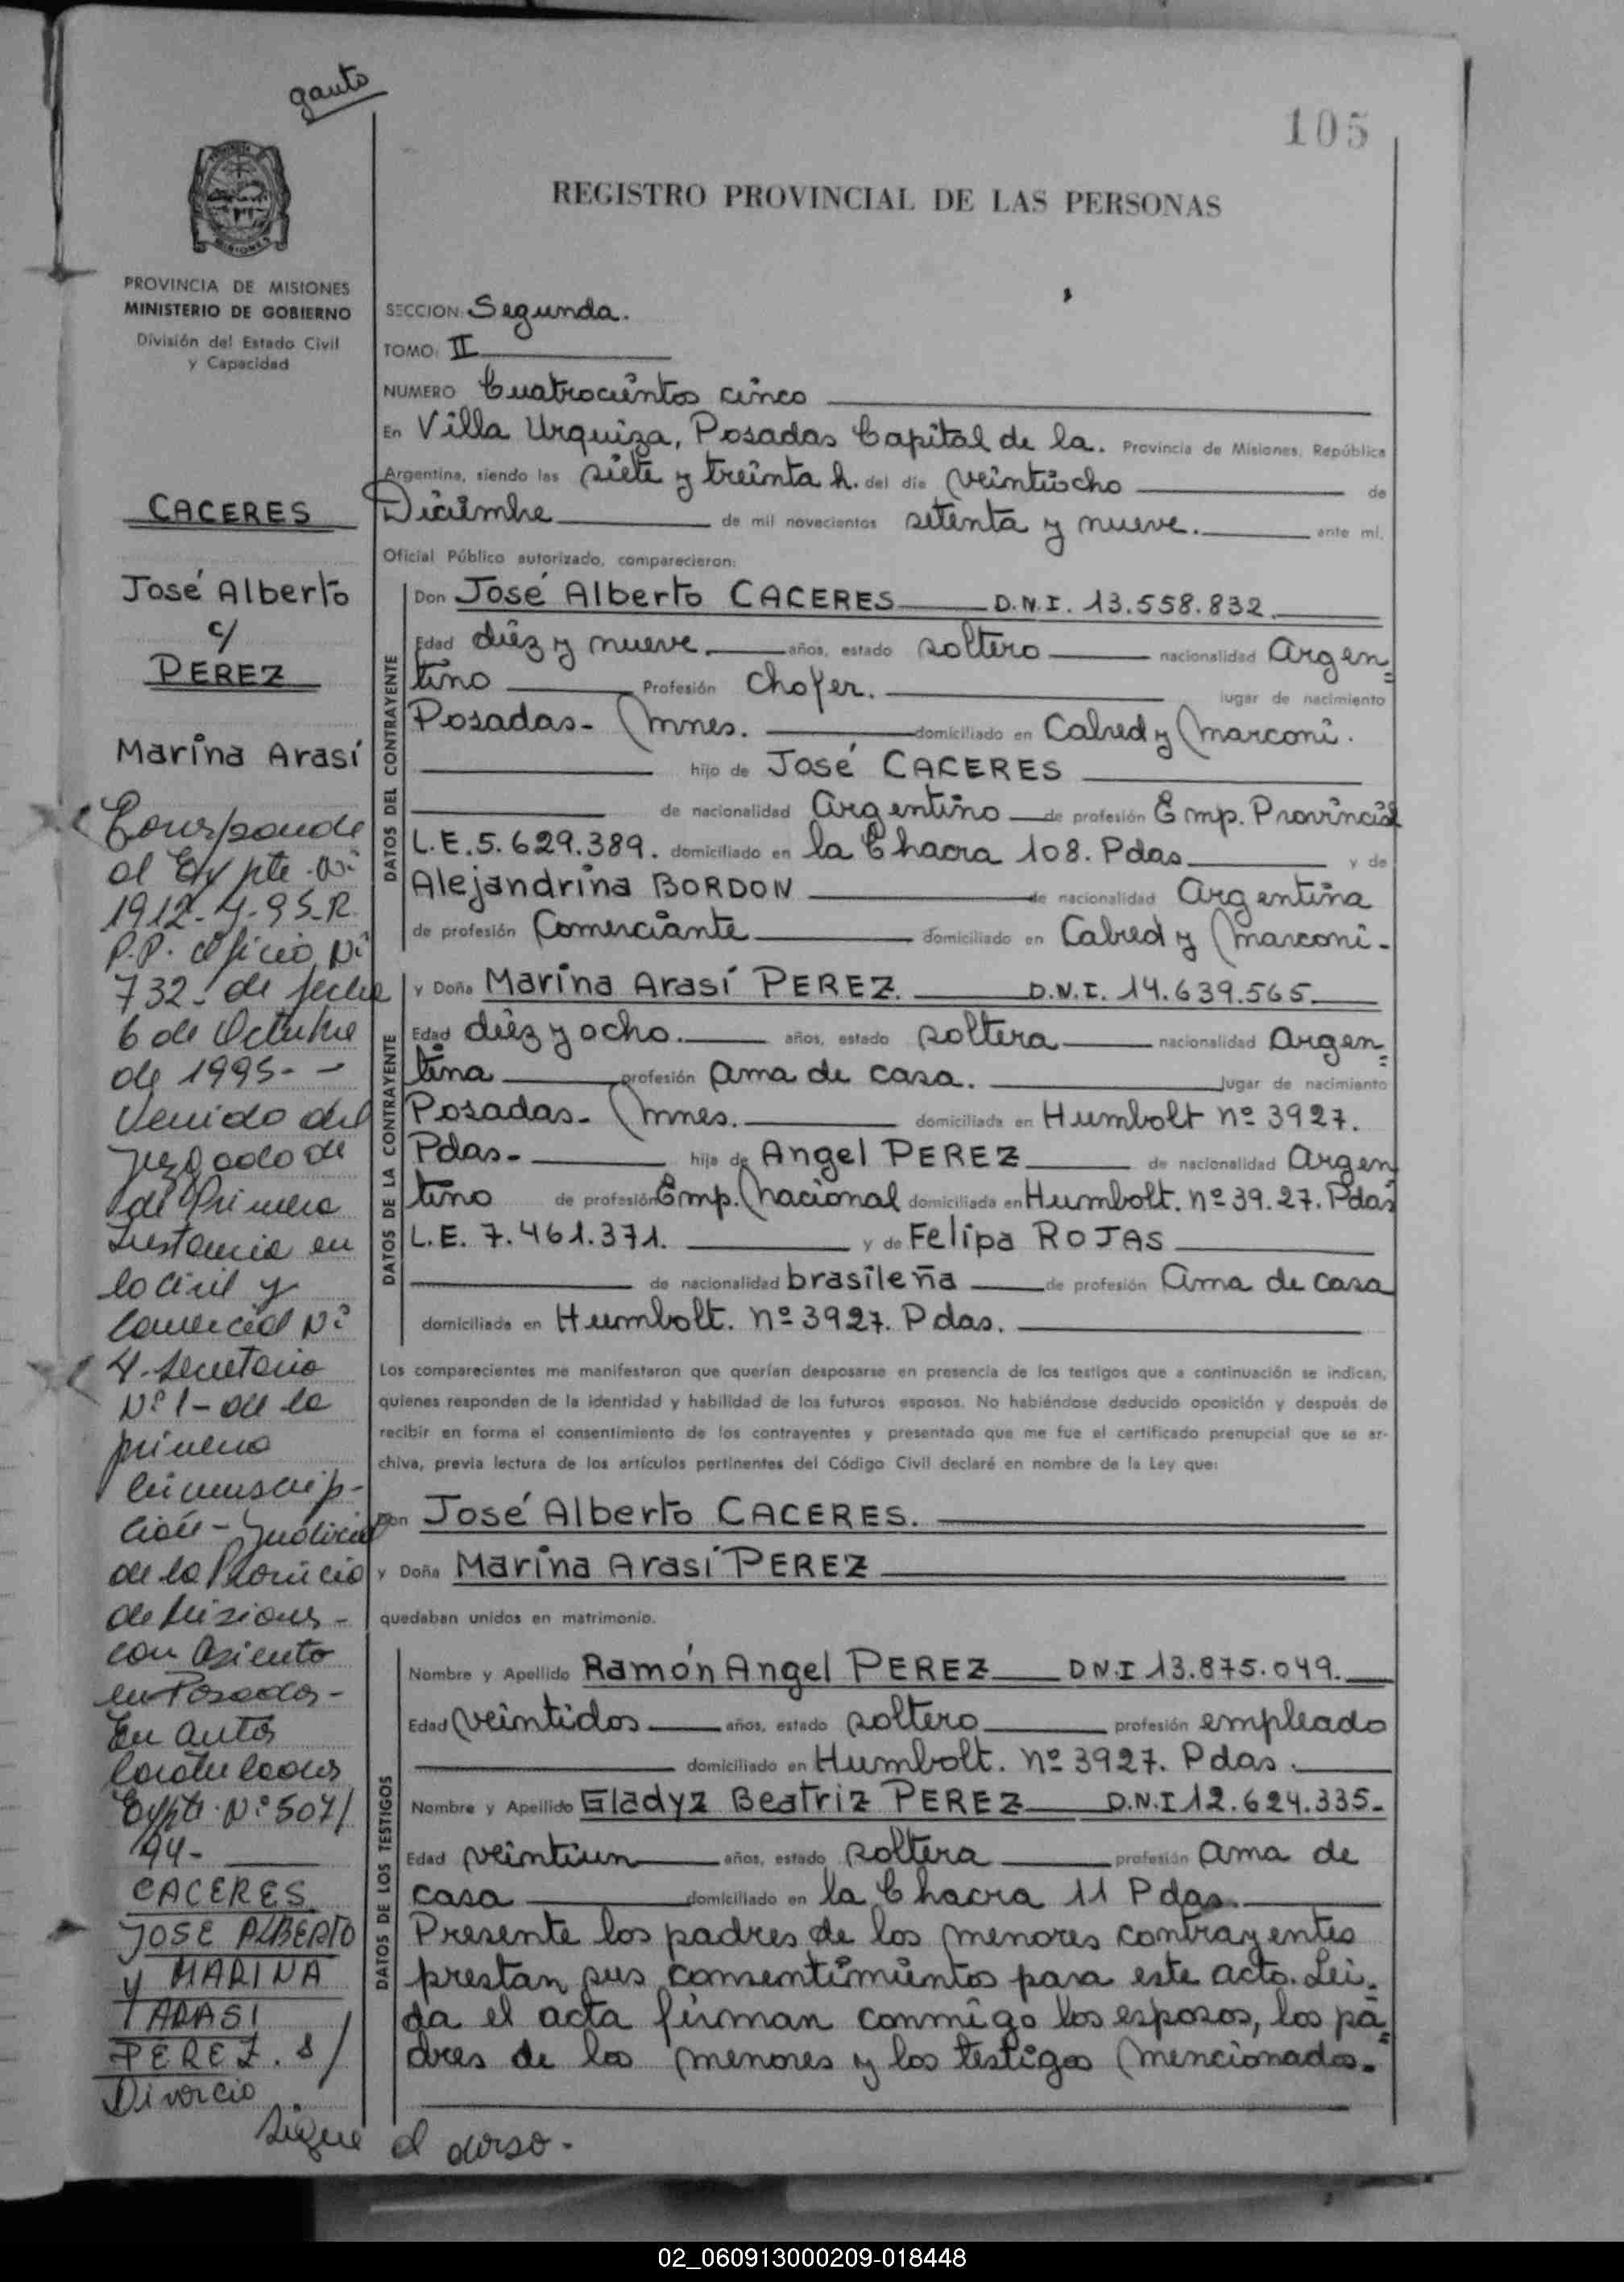 gauto
105
REGISTRO PROVINCIAL DE LAS PERSONAS
PROVINCIA DE MISIONES
MINISTERIO DE GOBIERNO
División del Estado Civil
y Capacidad
CACERES
José Alberto
c/
PEREZ
Marina Arasí
Corresponde
al Expte. Nº
1912-4-95-R.
P.P. Oficio Nº
732- de fecha
6 de Octubre
de 1995- -
Venido del
Juzgado de
de Primera
Instancia en
lo Civil y
Comercial Nº
4- Secretaria
Nº 1- de la
primera
Circunscrip-
ción- Judicial
de la Provincia
de Misiones-
con asiento
en Posadas-
En autos
Caratulados
Expte. Nº 507/
94-
CACERES
JOSE ALBERTO
y MARINA
ARASI
PEREZ. s/
Divorcio
Sigue al dorso-
SECCION: Segunda.
TOMO: II
NUMERO Cuatrocientos cinco
En Villa Urquiza, Posadas Capital de la. Provincia de Misiones, República
Argentina, siendo las siete y treinta h. del día veintiocho de
Diciembre de mil novecientos setenta y nueve. ante mí,
Oficial Público autorizado, comparecieron:
DATOS DEL CONTRAYENTE
Don José Alberto CACERES D.N.I. 13.558.832
Edad diez y nueve. años, estado soltero nacionalidad Argen=
tino Profesión Chofer. lugar de nacimiento
Posadas- Mnes. domiciliado en Cabred y Marconi.
hijo de José CACERES
de nacionalidad Argentino de profesión Emp. Provincial
L.E. 5.629.389. domiciliado en la Chacra 108. Pdas y de
Alejandrina BORDON de nacionalidad Argentina
de profesión Comerciante domiciliado en Cabred y Marconi-
DATOS DE LA CONTRAYENTE
y Doña Marina Arasí PEREZ. D.N.I. 14.639.565
Edad diez y ocho. años, estado soltera nacionalidad Argen=
tina profesión ama de casa. lugar de nacimiento
Posadas- Mnes. domiciliada en Humbolt nº 3927.
Pdas- hija de Angel PEREZ de nacionalidad Argen
tino de profesión Emp. Nacional domiciliada en Humbolt. nº 39.27. Pdas
L.E. 7.461.371. y de Felipa ROJAS
de nacionalidad brasileña de profesión ama de casa
domiciliada en Humbolt. nº 3927. Pdas.
Los comparecientes me manifestaron que querían desposarse en presencia de los testigos que a continuación se indican,
quienes responden de la identidad y habilidad de los futuros esposos. No habiéndose deducido oposición y después de
recibir en forma el consentimiento de los contrayentes y presentado que me fue el certificado prenupcial que se ar-
chiva, previa lectura de los artículos pertinentes del Código Civil declaré en nombre de la Ley que:
Don José Alberto CACERES.
y Doña Marina Arasí PEREZ
quedaban unidos en matrimonio.
DATOS DE LOS TESTIGOS
Nombre y Apellido Ramón Angel PEREZ D.N.I 13.875.049.
Edad veintidos años, estado soltero profesión empleado
domiciliado en Humbolt. nº 3927. Pdas.
Nombre y Apellido Gladyz Beatriz PEREZ D.N.I 12.624.335-
Edad veintiun años, estado soltera profesión ama de
casa domiciliado en la Chacra 11 Pdas.
Presente los padres de los menores contrayentes
prestan sus consentimientos para este acto. Lei=
da el acta firman conmigo los esposos, los pa=
dres de los menores y los testigos mencionados.
02_060913000209-018448